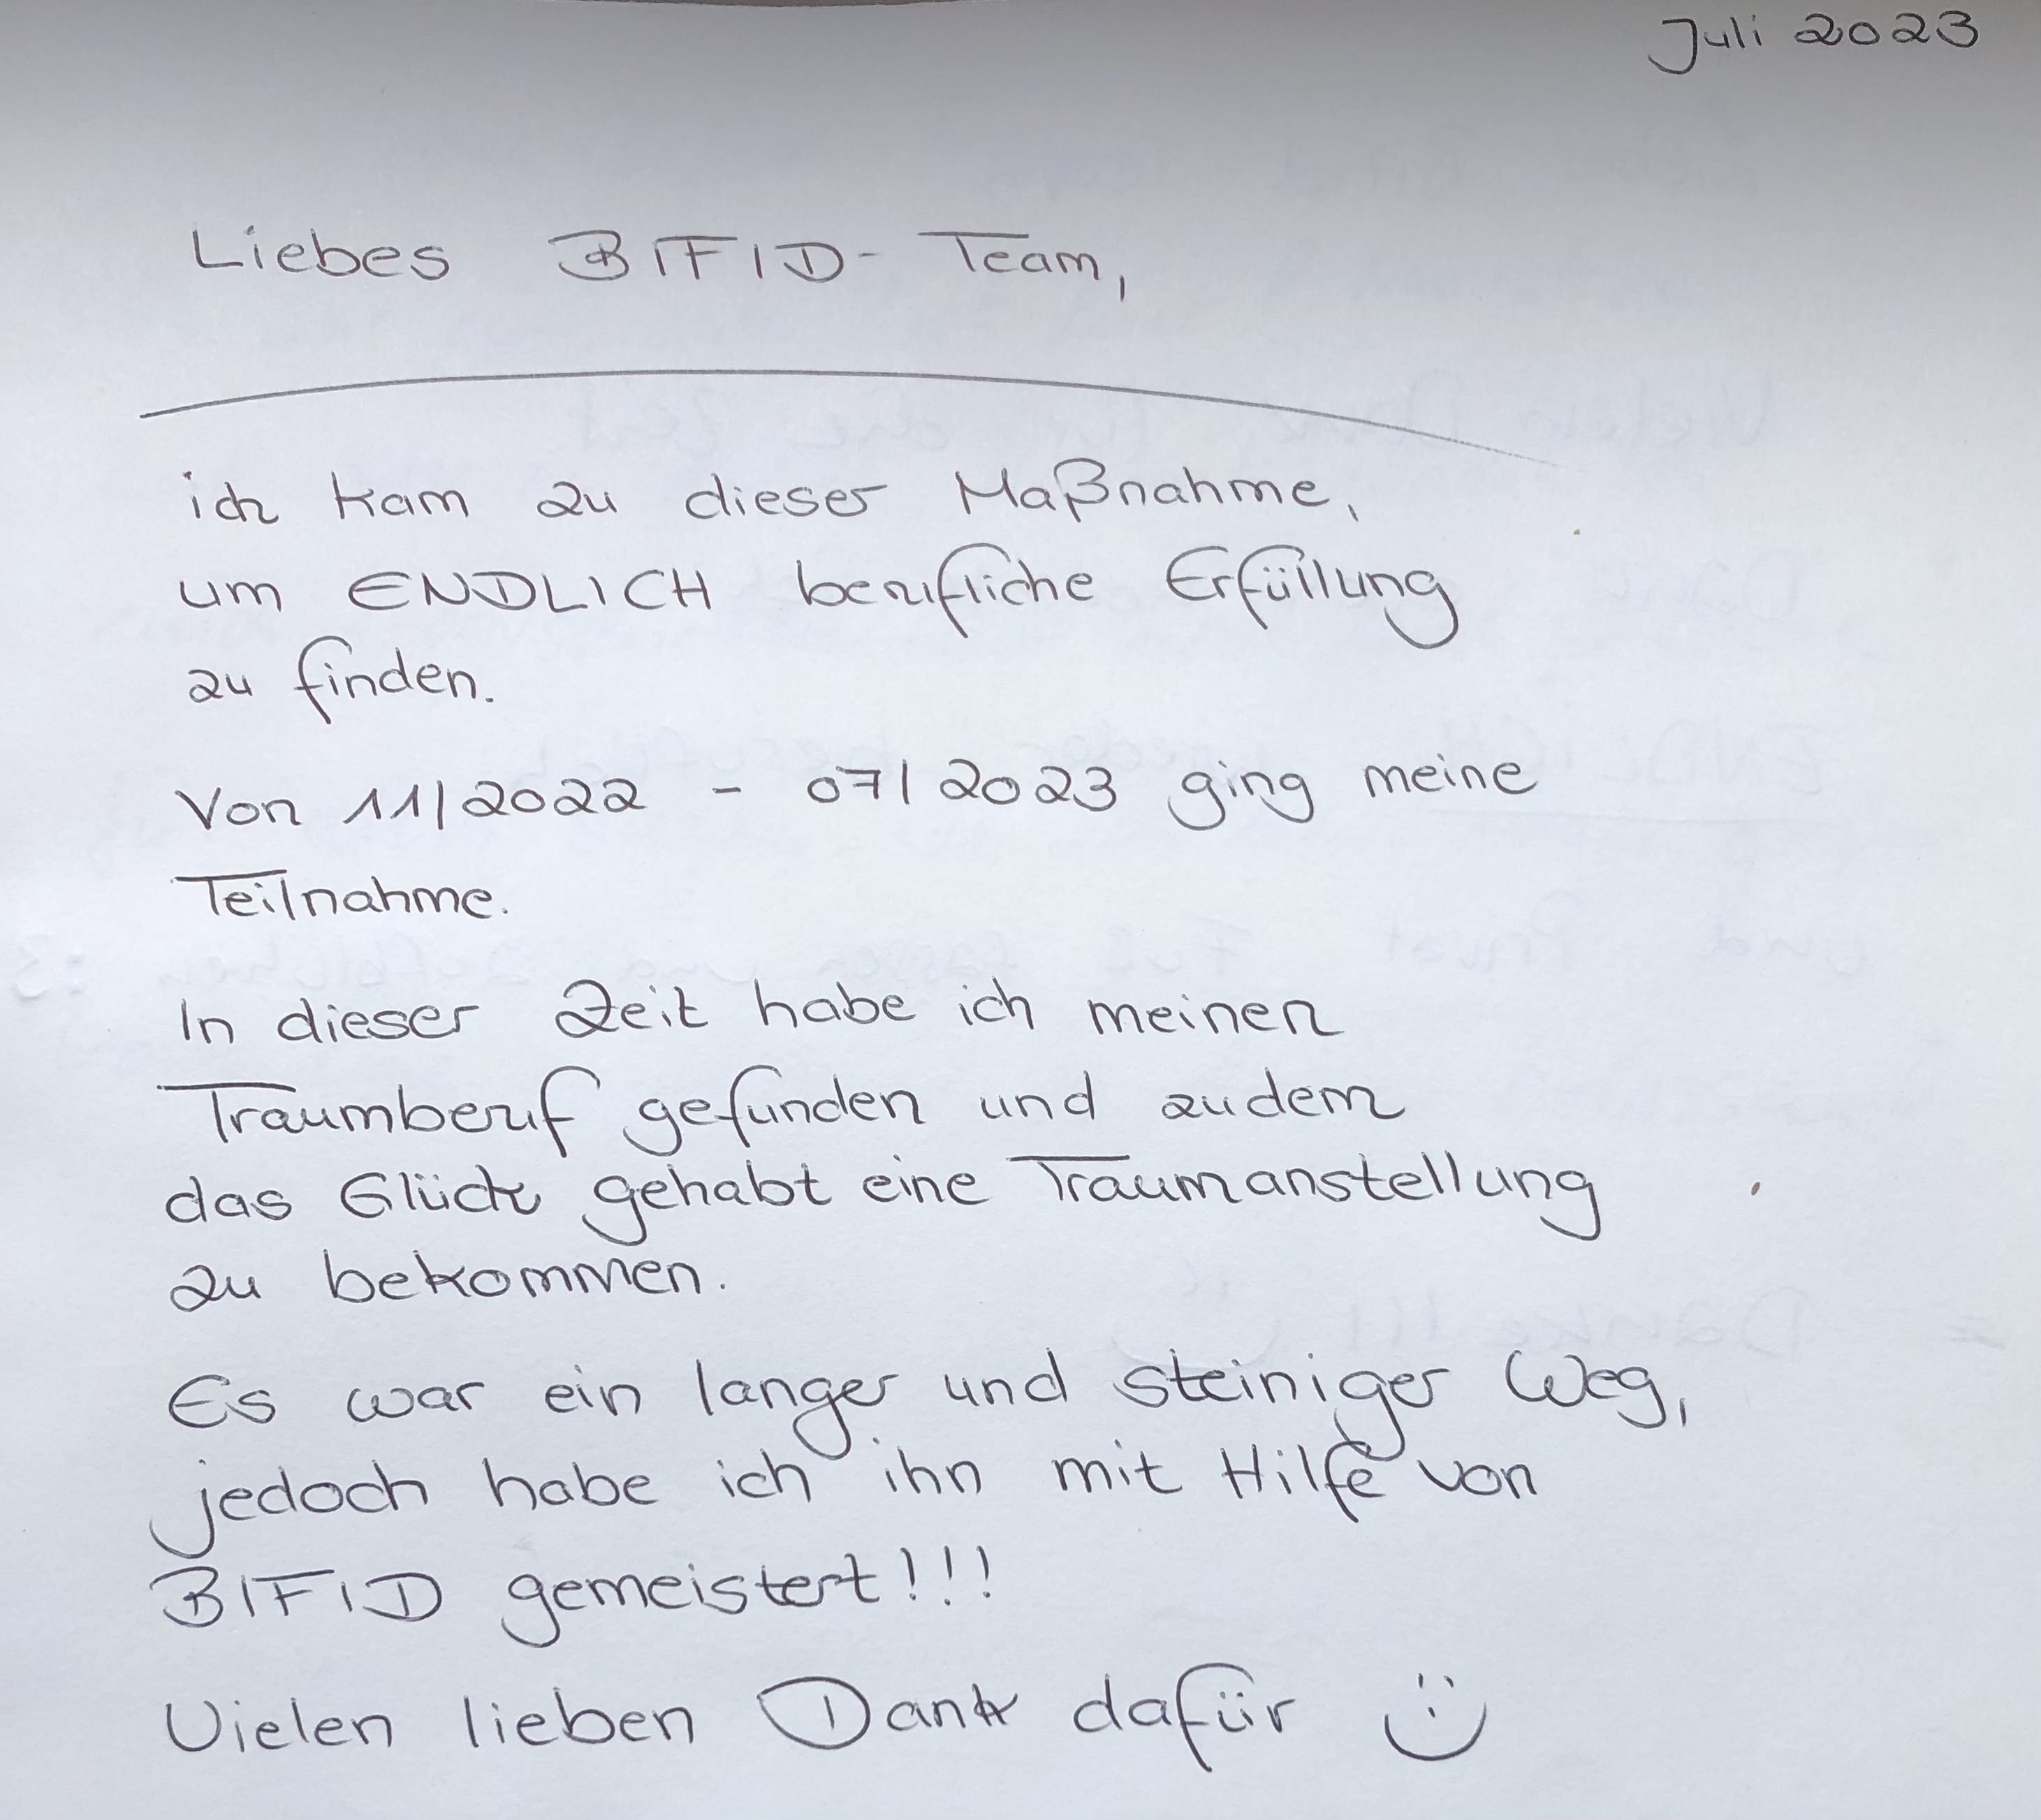 Juli 2023
Liebes BIFID-Team,
ich kam zu dieser Maßnahme,
um ENDLICH berufliche Erfüllung
zu finden.
Von 11/2022 - 07/2023 ging meine
Teilnahme.
In dieser Zeit habe ich meinen
Traumberuf gefunden und zudem
das Glück gehabt eine Traumanstellung
zu bekommen.
Es war ein langer und steiniger Weg,
jedoch habe ich ihn mit Hilfe von
BIFID gemeistert!!!
Vielen lieben Dank dafür :)